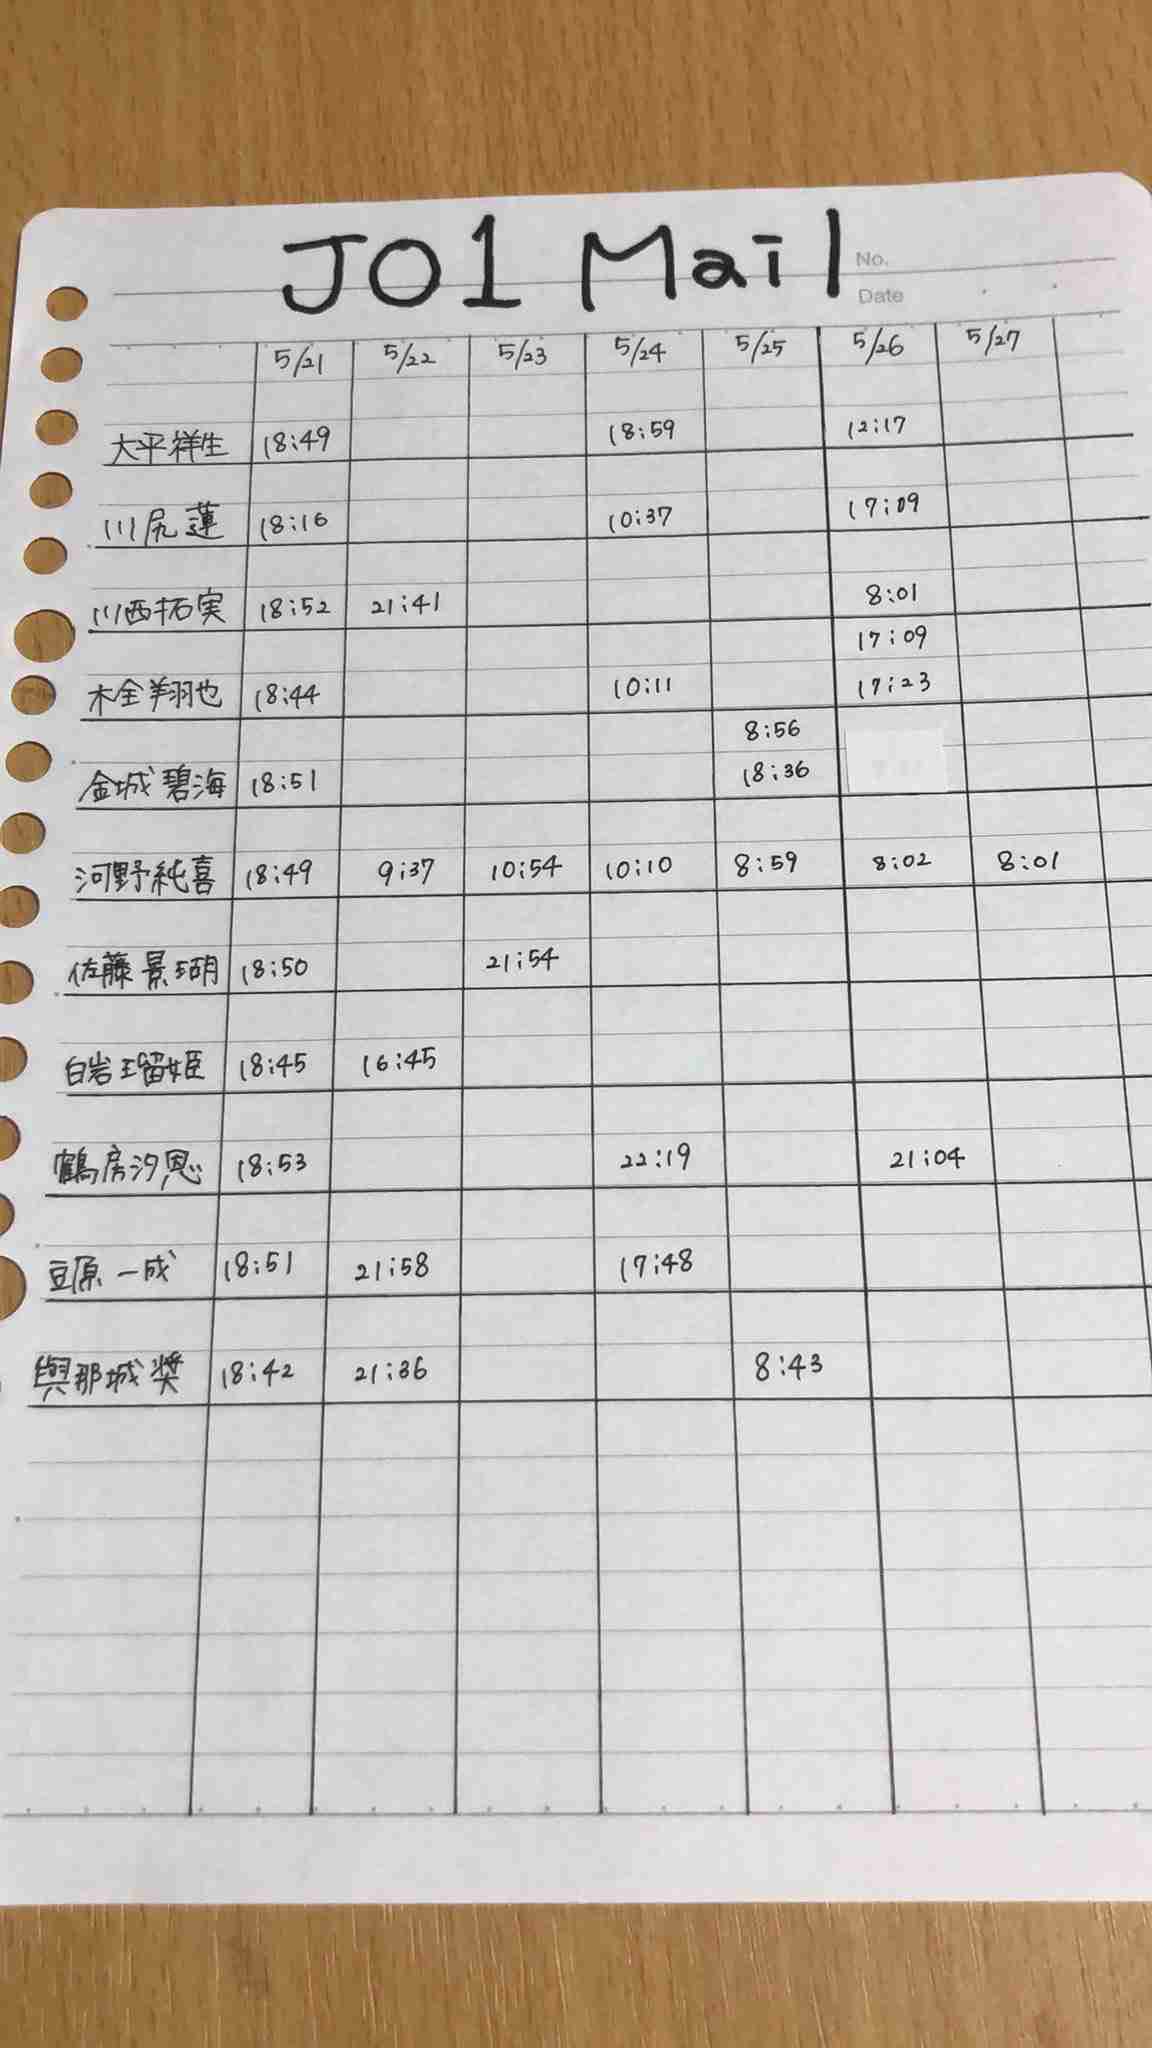 JO1 Mail
No.
Date
5/21 5/22 5/23 5/24 5/25 5/26 5/27
大平祥生 18:49 18:59 12:17
川尻蓮 18:16 10:37 17:09
川西拓実 18:52 21:41 8:01
17:09
木全翔也 18:44 10:11 17:23
8:56
金城碧海 18:51 18:36
河野純喜 18:49 9:37 10:54 10:10 8:59 8:02 8:01
佐藤景瑚 18:50 21:54
白岩瑠姫 18:45 16:45
鶴房汐恩 18:53 22:19 21:04
豆原一成 18:51 21:58 17:48
與那城奨 18:42 21:36 8:43